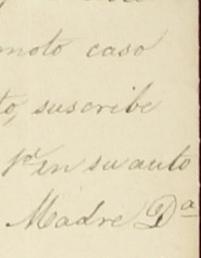 moto caso
to, suscribe
1or en su auto
Madre Da